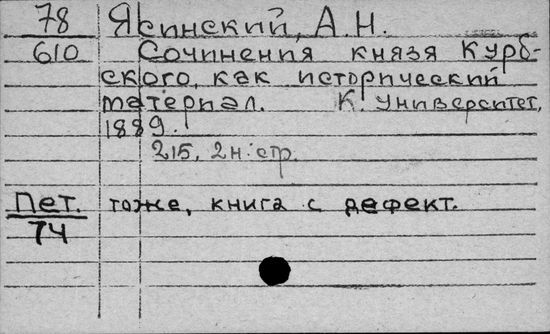 78 Ясинский, А.Н.
610 Сочинения князя Курб-
ского, как исторический
материал. К. университет,
1889.
215, 2 н. стр.
Пет. тоже, книга с дефект.
74